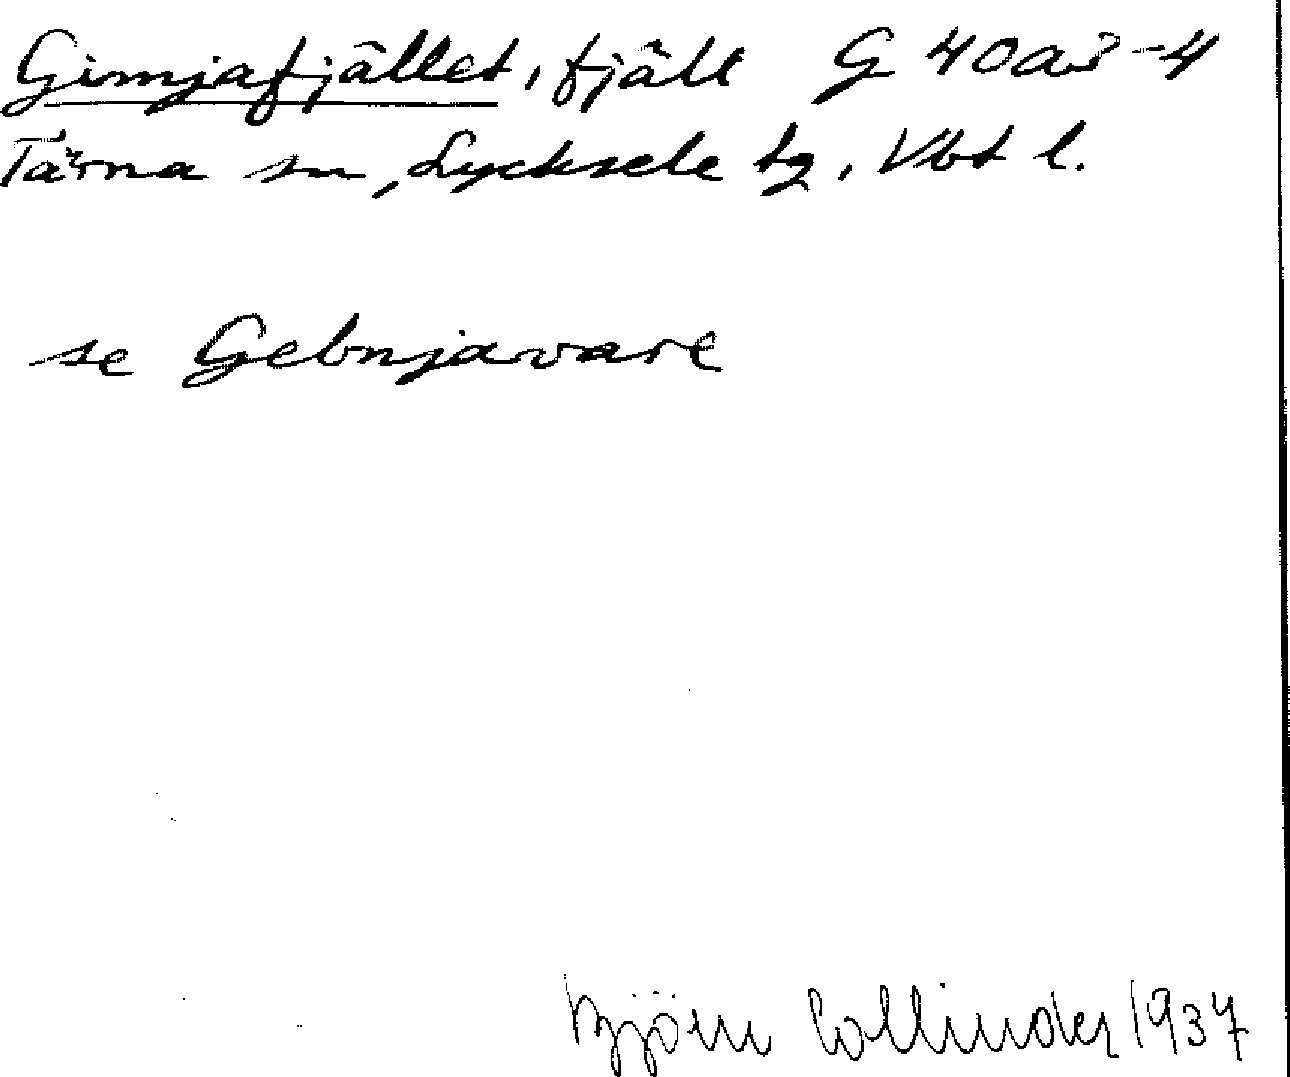 Gimjafjället, fjäll G 40a3-4
Tärna sn, Lycksele tg, Vbt l.
se Gebnjavare
Björn Collinder 1937